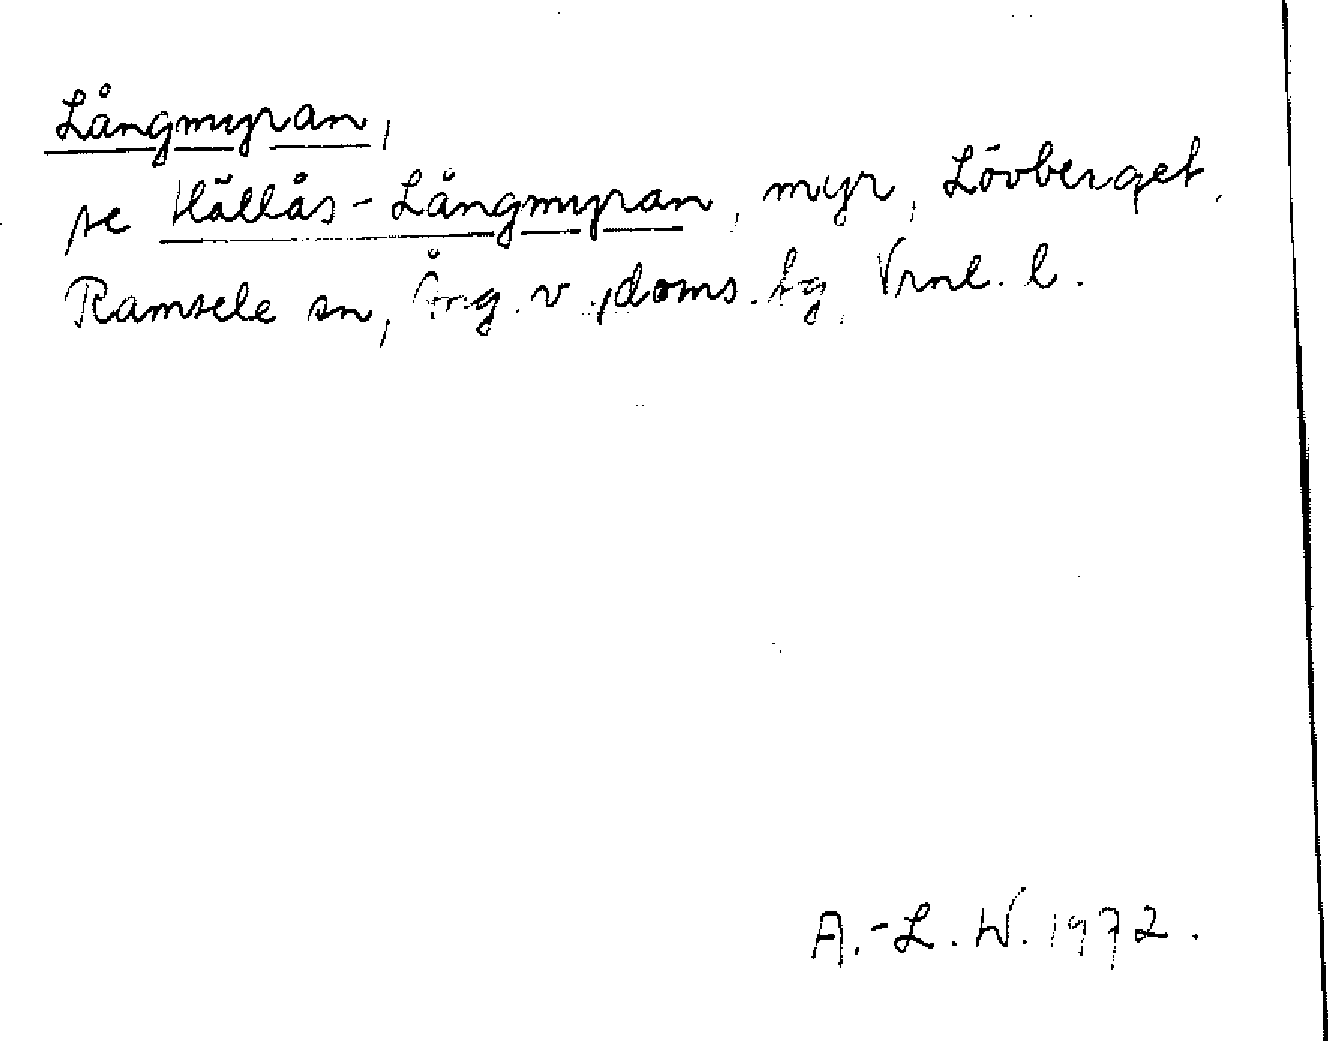 Långmyran,
se Hällås-Långmyran, myr, Lövberget,
Ramsele sn, Ång. v. doms. tg, Vrnl. l.
A.-L. W. 1972.